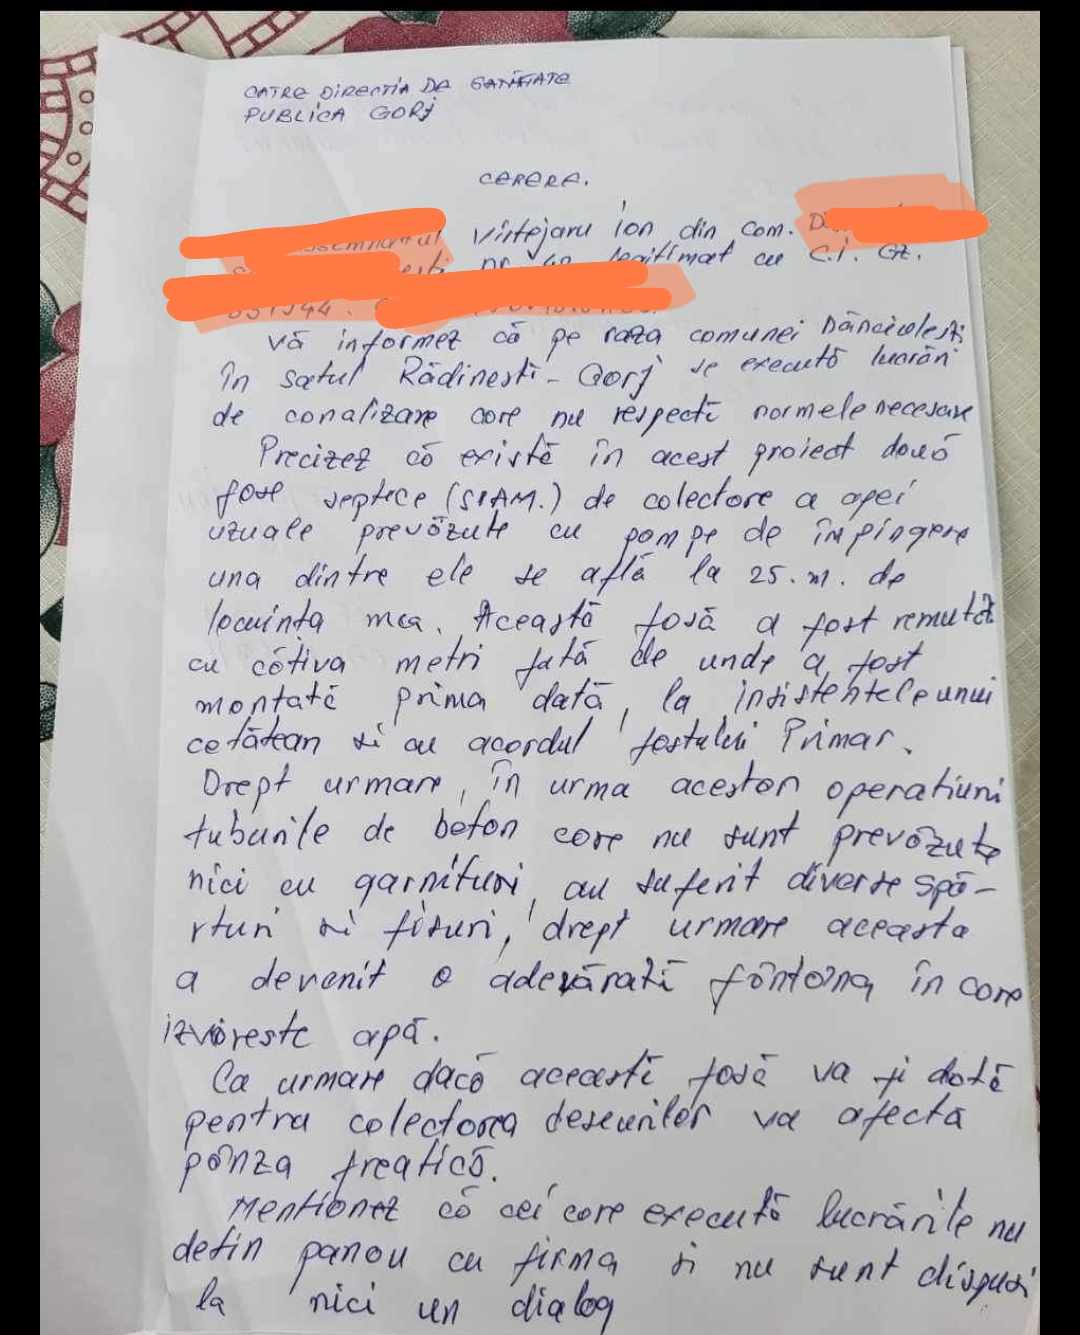 CATRE DIRECTIA DE SANATATE
PUBLICA GORJ
CERERE.
Vistejaru ion din com. D
nr legitimat cu C.i. Gz.
Vă informez că pe raza comunei Dănciulești
în satul Rădinesti - Gorj se execută lucrări
de canalizare care nu respectă normele necesare
Precizez că există în acest proiect două
fose septice (SPAM.) de colectare a apei
uzuale prevăzute cu pompe de împingere
una dintre ele se află la 25.m. de
locuința mea. Această fosă a fost remută
cu câtiva metri fată de unde a fost
montată prima dată, la insistentele unui
cetătean si cu acordul fostului Primar.
Drept urmare, în urma acestor operatiuni
tuburile de beton care nu sunt prevăzute
nici cu garnituri, au suferit diverse spă-
rturi si fisuri, drept urmare aceasta
a devenit o adevărată fântâna în care
izvoreste apă.
Ca urmare dacă această fosă va fi dată
pentru colectarea deseurilor va afecta
pânza freatică.
Mentionez că cei care execută lucrările nu
detin panou cu firma si nu sunt dispusi
la nici un dialog